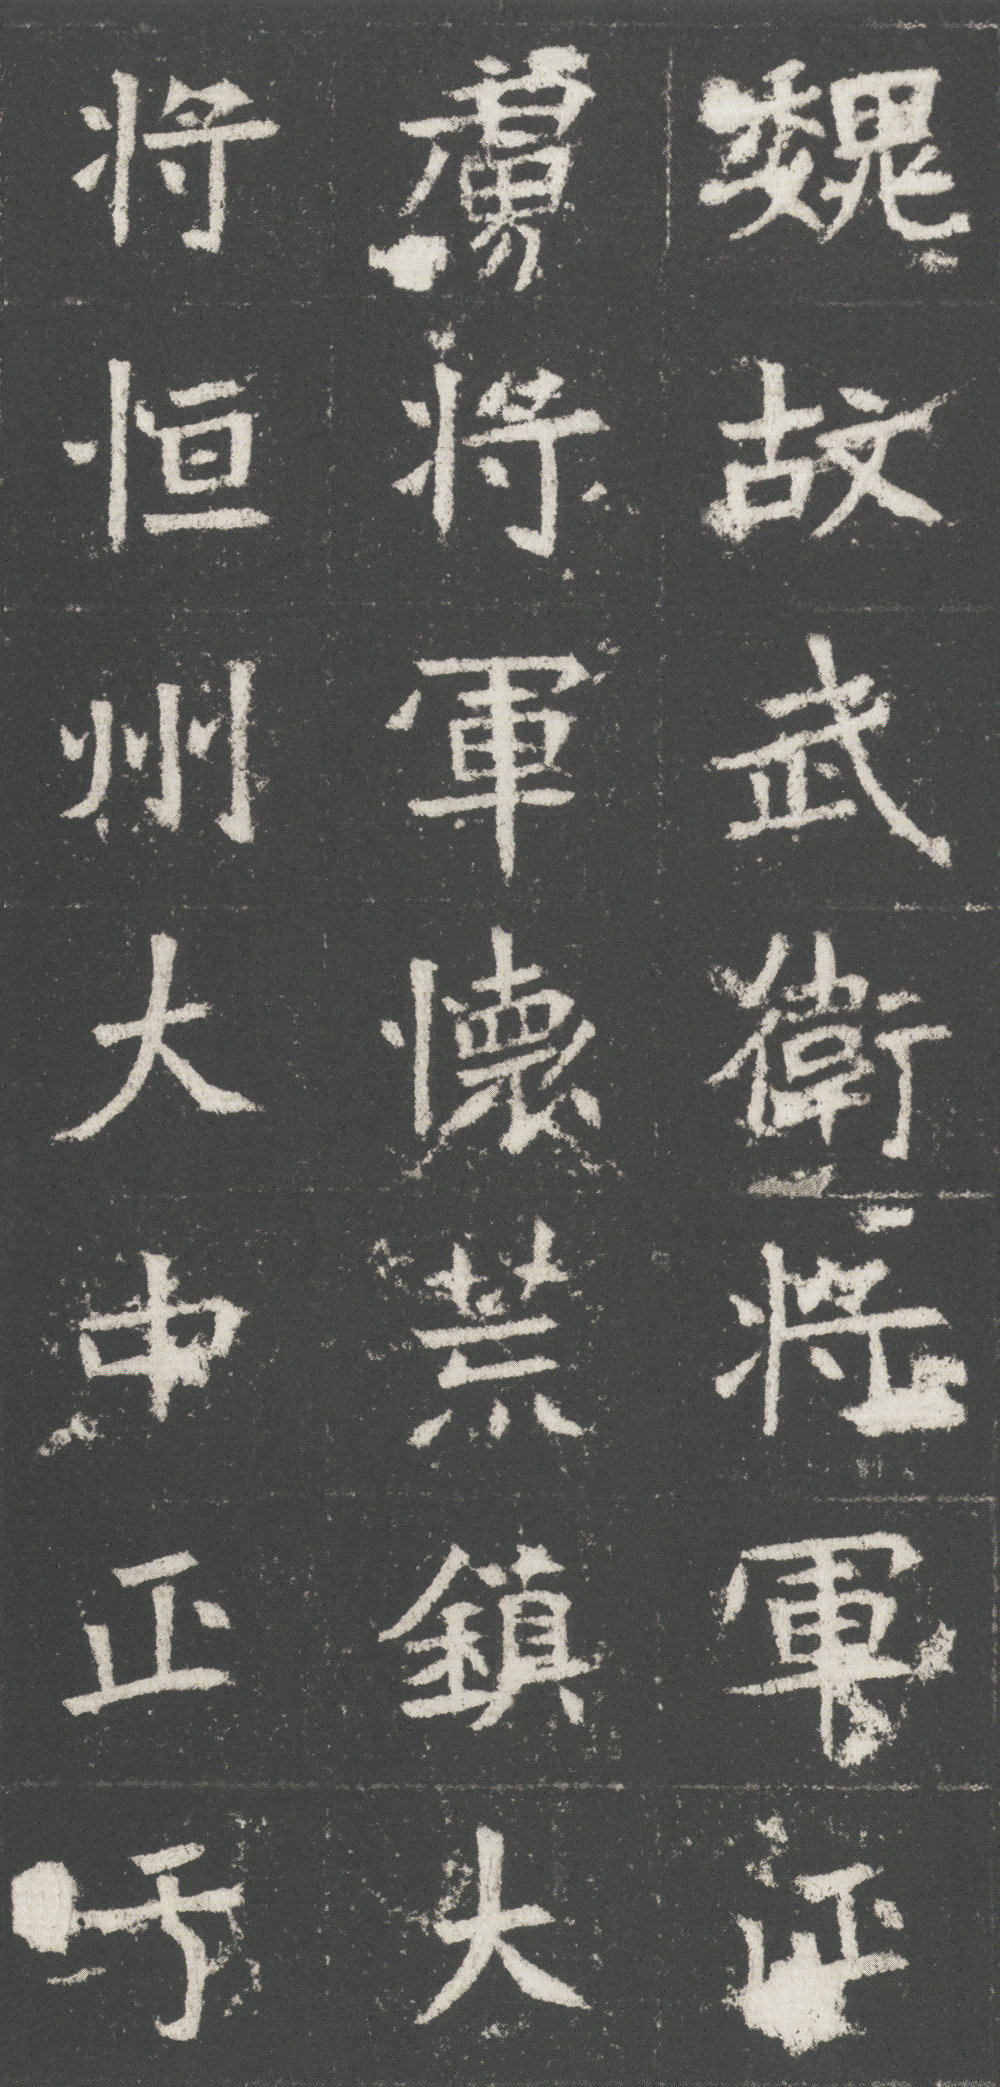 魏故武衛將軍征
虜將軍懷荒鎮大
將恒州大中正于